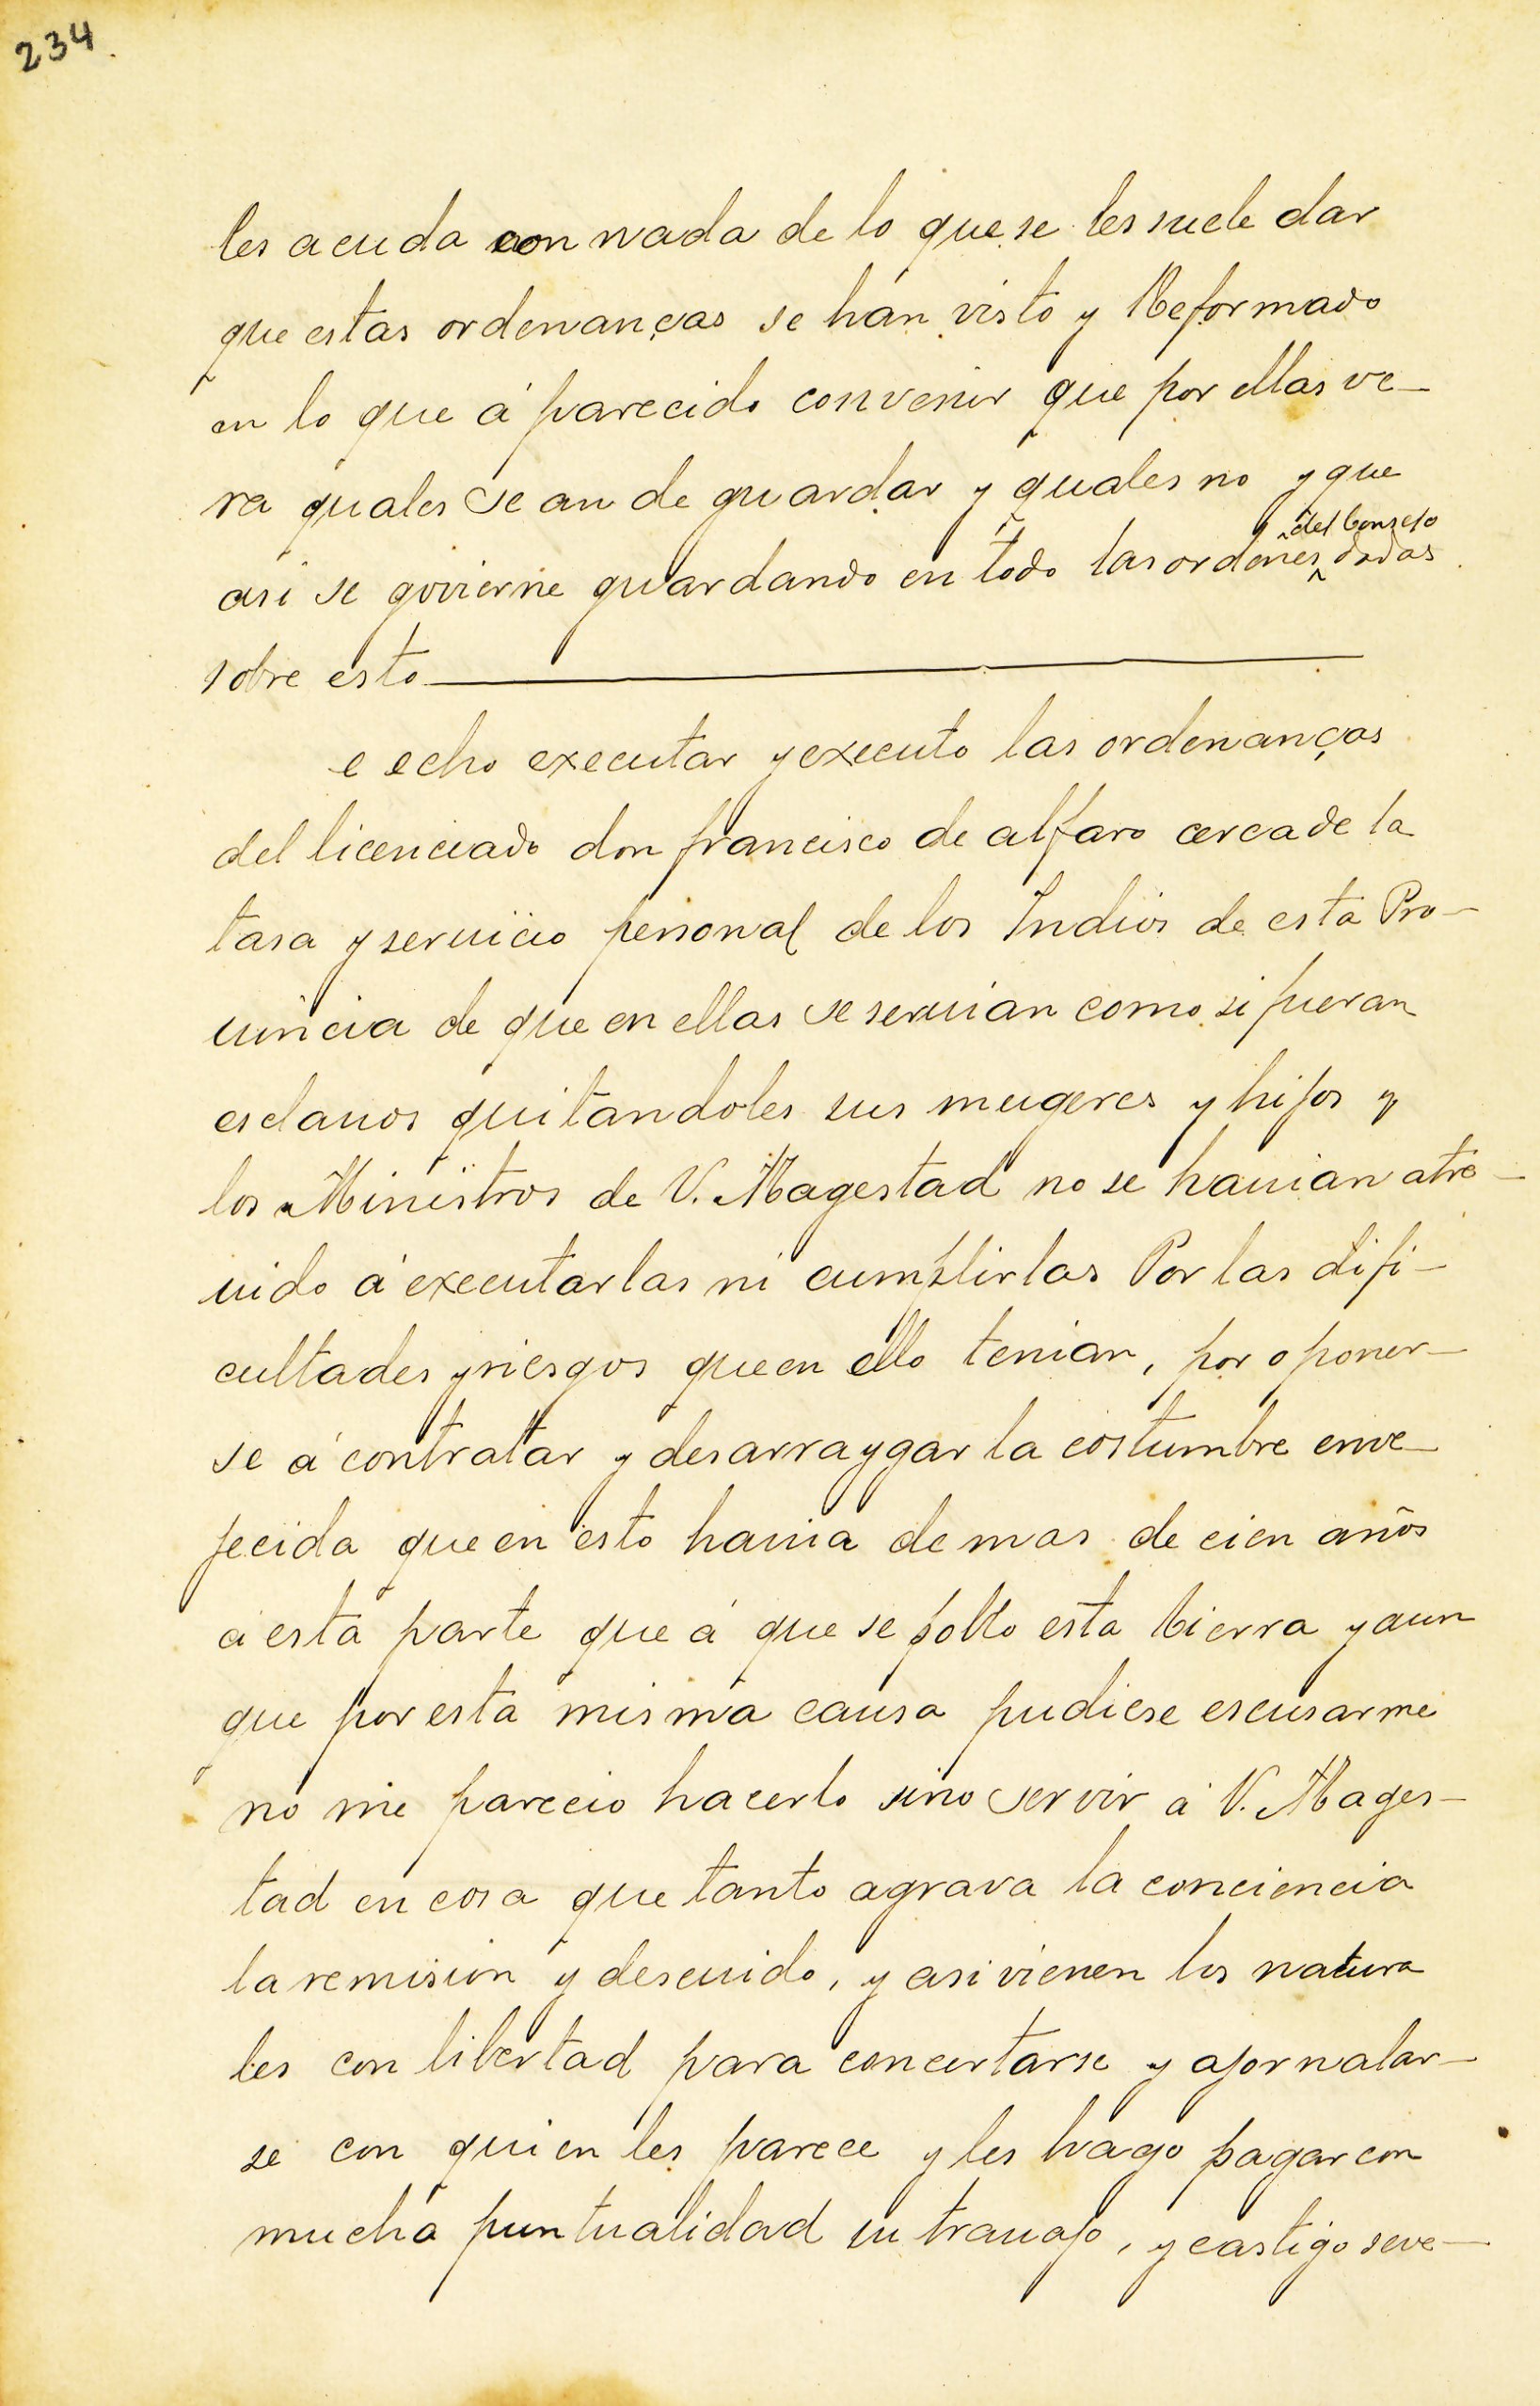 234.
les acuda con nada de lo que se les suele dar
que estas ordenanças se han visto y Reformado
en lo que á parecido convenir que por ellas ve-
ra quales se an de guardar y quales no y que
del Consejo
asi se govierne guardando en todo las ordenes dadas
sobre esto
e echo executar y executo las ordenanças
del licenciado don francisco de alfaro cerca de la
tasa y seruicio personal de los Indios de esta Pro-
uincia de que en ellas se seruian como si fueran
esclauos quitandoles sus mugeres y hijos y
los Ministros de V. Magestad no se hauian atre-
uido á executarlas ni cumplirlas Por las difi-
cultades y riesgos que en ello tenian, por oponer-
se á contratar y desarraygar la costumbre enve-
jecida que en esto hauia de mas de cien años
á esta parte que á que se poblo esta tierra y aun
que por esta misma causa pudiese escusarme
no me parecio hacerlo sino servir á V. Mages-
tad en cosa que tanto agrava la conciencia
la remision y descuido, y asi vienen los natura
les con libertad para concertarse y ajornalar-
se con quien les parece y les hago pagar con
mucha puntualidad su trauajo, y castigo seve-